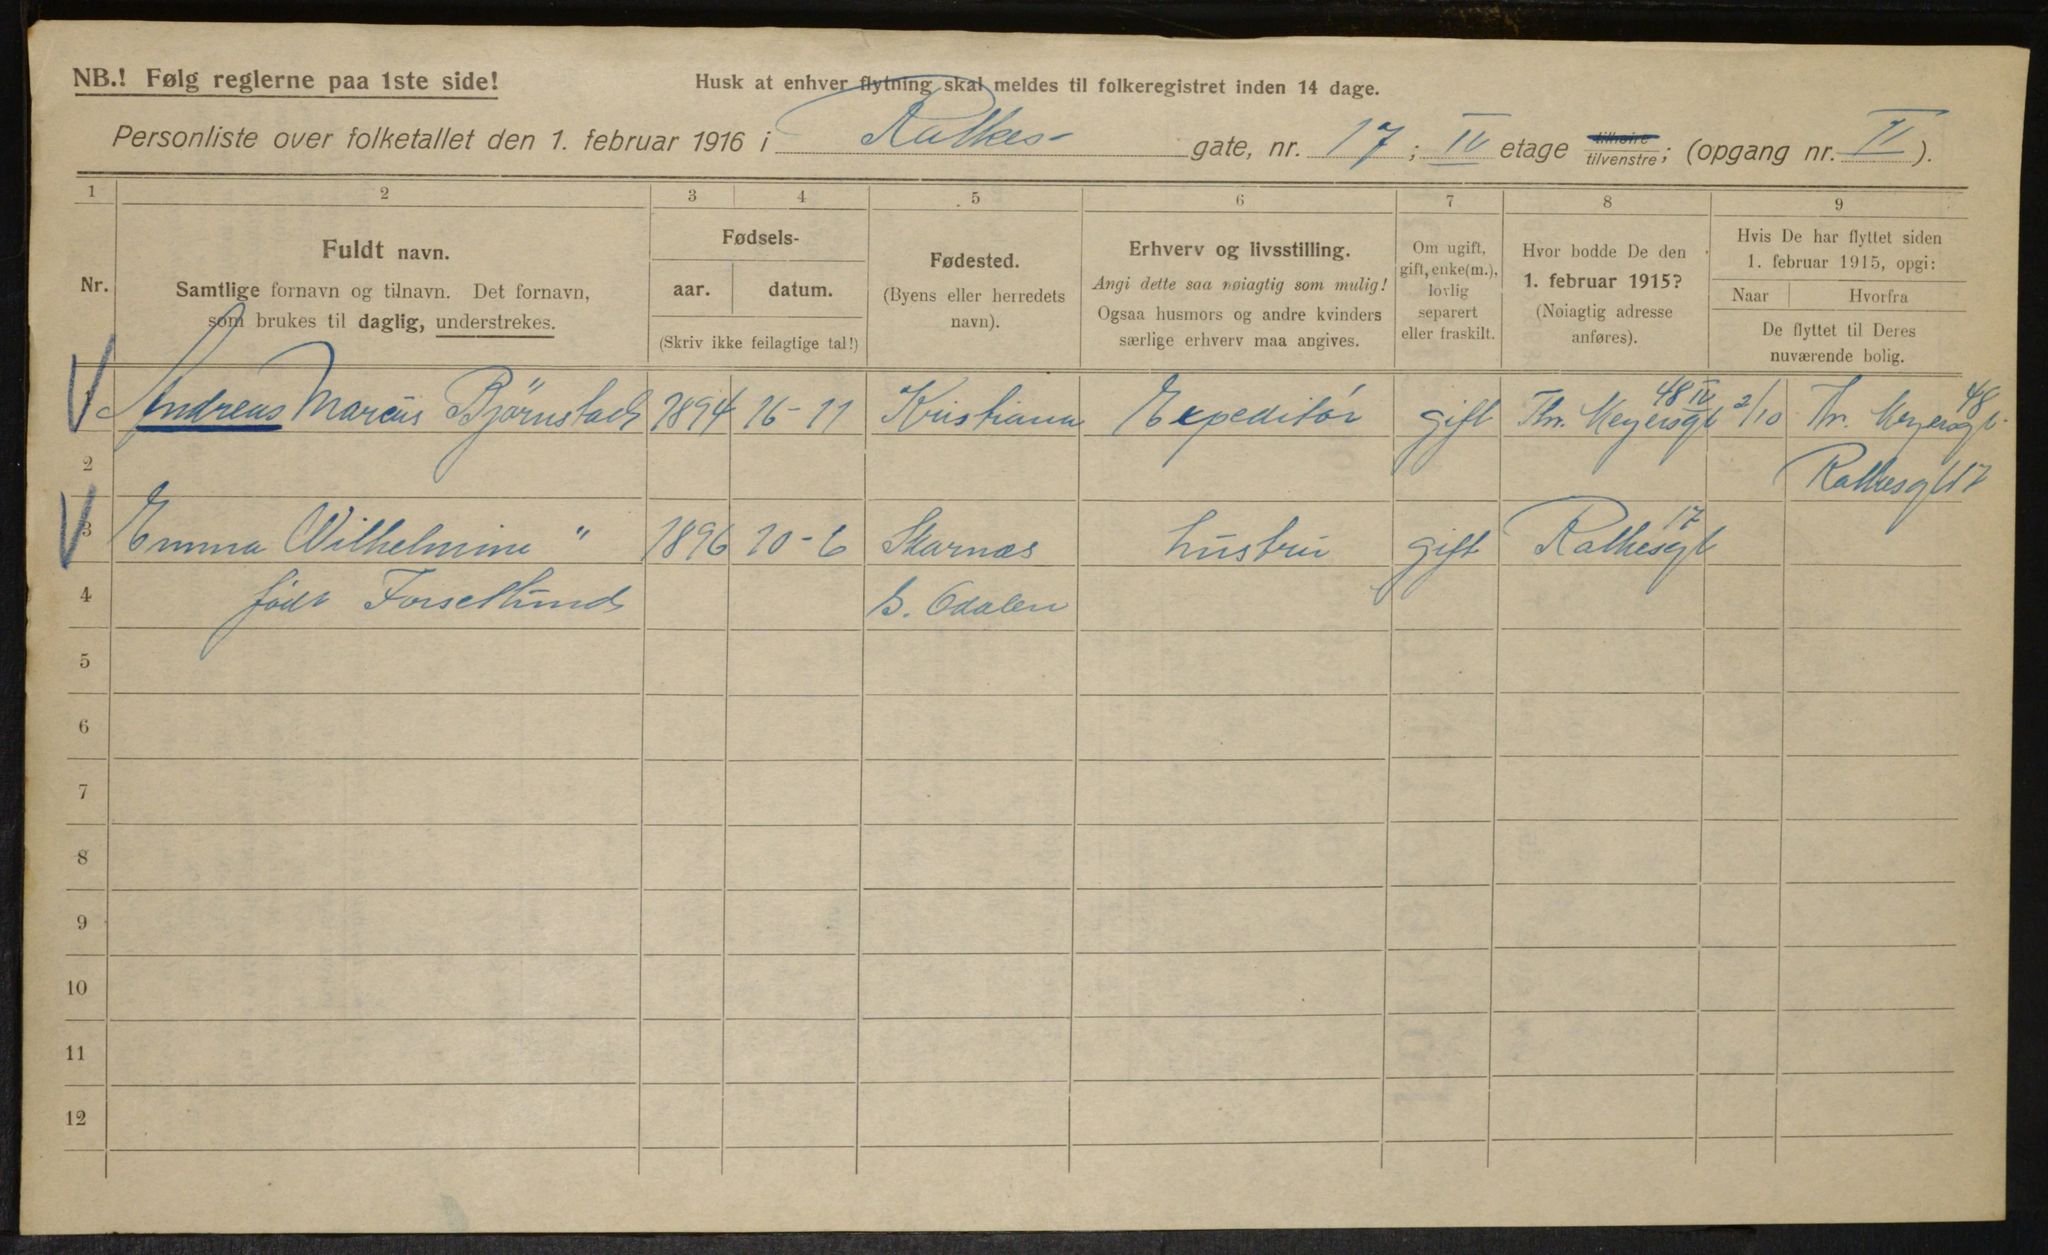 NB.! Følg reglerne paa 1ste side!
Husk at enhver flytning skal meldes til folkeregistret inden 14 dage.
Personliste over folketallet den 1. februar 1916 i Rathkes- gate, nr. 17; IV etage tilhøire tilvenstre; (opgang nr. II).
1 2 3 4 5 6 7 8 9
Nr.
Fuldt navn.
Samtlige fornavn og tilnavn. Det fornavn,
som brukes til daglig, understrekes.
Fødsels-
aar. datum.
(Skriv ikke feilagtige tal!)
Fødested.
(Byens eller herredets
navn).
Erhverv og livsstilling.
Angi dette saa nøiagtig som mulig!
Ogsaa husmors og andre kvinders
særlige erhverv maa angives.
Om ugift,
gift, enke(m.),
lovlig
separert
eller fraskilt.
Hvor bodde De den
1. februar 1915?
(Nøiagtig adresse
anføres).
Hvis De har flyttet siden
1. februar 1915, opgi:
Naar Hvorfra
De flyttet til Deres
nuværende bolig.
Andreas Marcus Björnstad 1894 16-11 Kristiania Expeditör gift Thv. Meyersgt 48 IV 2/10 Thv. Meyersgt. 48
2 Rathkesgt 17
3 Emma Wilhelmine " 1896 10-6 Skarnæs hustru gift Rathkesgt 17
4 født Forselund S. Odalen
5
6
7
8
9
10
11
12